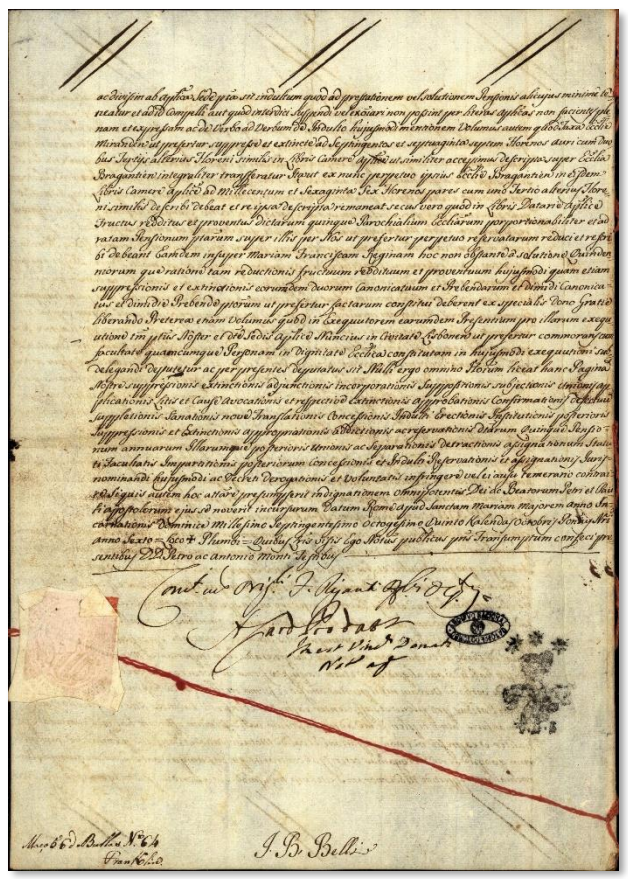 ac divisim ab aplica Sede ptã sit indultum quod ad prestationem vel solutionem Pensionis alicujus minime te
neatur et ad id compelli aut quod interdici suspendi vel excõicari non possint per literas aplicas non facientes ple
nam et expressam ac de Verbo ad Verbum de Indulto hujusmodi mentionem Volumus autem quod taxa Ecclie
Miranden ut prefertur suppresse et extincte ad Septingentos et septuaginta septem florenos auri cum duo
bus tertijs alterius floreni similis in libris Camere aplice ut similiter accepimus descripta super Ecclia
Bragantien integraliter transferatur itaut ex nunc perpetuo ipsius Ecclie Bragantien in eisdem
libris Camere aplice ad Millecentum et Sexaginta Sex florenos pares cum uno tertio alterius flore
ni similis describi debeat et reipsa descripta remaneat secus vero quod in libris Datarie aplice
fructus redditus et proventus dictarum quinque Parochialium Eccliarum porportionabiliter et ad
ratam Pensionum ptarum super illis per Nos ut prefertur perpetuo reservatarum reduci et restri
bi debeant Eamdem insuper Mariam Franciscam Reginam hoc non obstante a solutione Quinden
niorum que ratione tam reductionis fructuum reddituum et proventuum hujusmodi quam etiam
suppressionis et extinctionis eorumdem duorum Canonicatuum et Prebendarum et dimidii Canonica
tus et dimidie Prebende ptorum ut prefertur factarum constitui deberent ex speciali dono Gratie
liberando Preterea etiam Volumus quod in Exequutorem earumdem Presentium pro illarum exequ
utione tm ptus Noster et dte Sedis Aplice Nuncius in Civitate Lisbonen ut prefertur commorans cum
facultate quamcumque Personam in Dignitate Ecclica constitutam in hujusmodi exequutioni sub
delegandi deputetur ac per presentes deputatus sit Nulli ergo omnino hominum liceat hanc Paginam
Nostre suppressionis extinctionis adjunctionis incorporationis Suppositionis subjectionis Unionis ap
plicationis Litis et Cause Avocationis et respective Extinctionis approbationis Confirmationis defectuum
suppletionis Sanationis nove Translationis Concessionis Indulti Erectionis Institutionis posterioris
Suppressionis et Extinctionis appropriationis addictionis ac reservationis dtarum Quinque Pensio
num annuarum Illarumque posterioris Unionis ac Separationis Detractionis assignationum Statu
ti facultatis Impartitionis posteriorum Concessionis et Indulti Reservationis et assignationis Juris
nominandi hujusmodi ac Decreti Derogationis et Voluntatis infringere vel ei ausu temerario contrai
re Siquis autem hoc attentare presumpserit indignationem omnipotentis Dei ac Beatorum Petri et Pau
li apostolorum ejus se noverit incursurum Datum Rome apud Sanctam Mariam majorem anno In
carnationis Dominice Millesimo Septingentesimo Octogesimo Quinto Kalendas Octobris Pontus Nri
anno Sexto = Loco + Plumbi = Quibus Ego Notus publicus pns Transumptum confeci pre
sentibus DD Petro ac Antonio Monti Testibus
J. B. Belli
Maço 66 d Bullas N.º 64